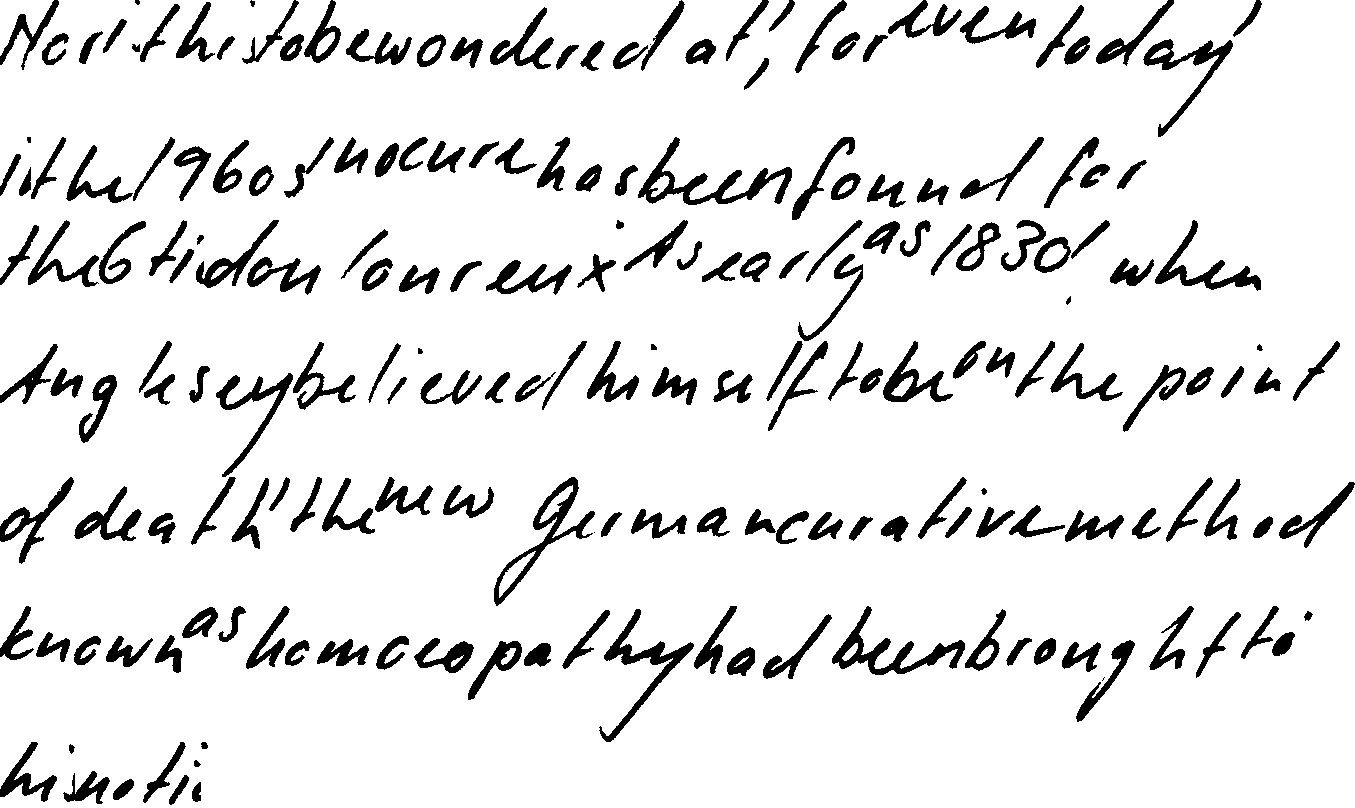 Nor is this to be wondered at, for even today
in the 1960s no cure has been found for
the As early as 1830, when
Anglesey believed himself to be on the point
of death, the new German curative method
known as homoeopathy had been brought to
his